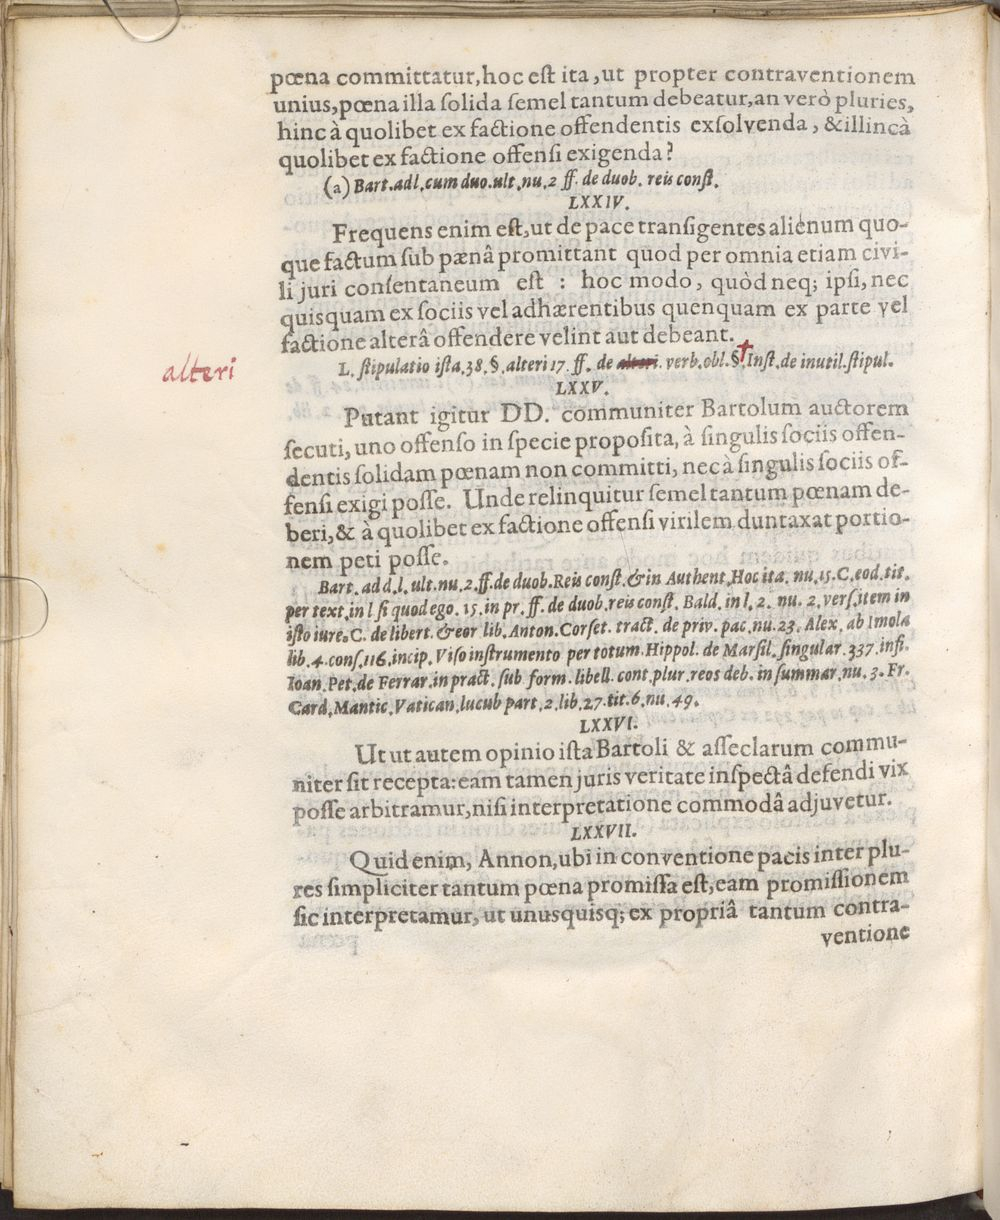 pœna committatur, hoc est ita, ut propter contraventionem
unius, pœna illa solida semel tantum debeatur, an verò pluries,
hinc à quolibet ex factione offendentis exsolvenda, & illincà
quolibet ex factione offensi exigenda?
(a) Bart. ad l. cum duo. ult. nu. 2 ff. de duob. reis const.
LXXIV.
Frequens enim est, ut de pace transigentes alienum quo-
que factum sub pænâ promittant quod per omnia etiam civi-
li juri consentaneum est : hoc modo, quòd neq; ipsi, nec
quisquam ex sociis vel adhærentibus quenquam ex parte vel
factione alterâ offendere velint aut debeant.
alteri
L. stipulatio ista. 38. §. alteri 17. ff. de alteri. verb. obl. §.† Inst. de inutil. stipul.
LXXV.
Putant igitur DD. communiter Bartolum auctorem
secuti, uno offenso in specie proposita, à singulis sociis offen-
dentis solidam pœnam non committi, nec à singulis sociis of-
fensi exigi posse. Unde relinquitur semel tantum pœnam de-
beri, & à quolibet ex factione offensi virilem duntaxat portio-
nem peti posse.
Bart. ad d. l. ult. nu. 2. ff. de duob. Reis const. & in Authent. Hoc ita. nu. 15. C. eod. tit.
per text. in l si quod ego. 15. in pr. ff. de duob. reis const. Bald. in l. 2. nu. 2. vers. item in
isto iure. C. de libert. & eor lib. Anton. Corset. tract. de priv. pac. nu. 23. Alex. ab Imola
lib. 4. cons. 116. incip. Viso instrumento per totum. Hippol. de Marsil. singular. 337. infi.
Ioan. Pet. de Ferrar. in pract. sub form. libell. cont. plur. reos deb. in summar. nu. 3. Fr.
Card. Mantic. Vatican. lucub part. 2. lib. 27. tit. 6. nu. 49.
LXXVI.
Ut ut autem opinio ista Bartoli & asseclarum commu-
niter sit recepta: eam tamen juris veritate inspectâ defendi vix
posse arbitramur, nisi interpretatione commodâ adjuvetur.
LXXVII.
Quid enim, Annon, ubi in conventione pacis inter plu-
res simpliciter tantum pœna promissa est, eam promissionem
sic interpretamur, ut unusquisq; ex propriâ tantum contra-
ventione